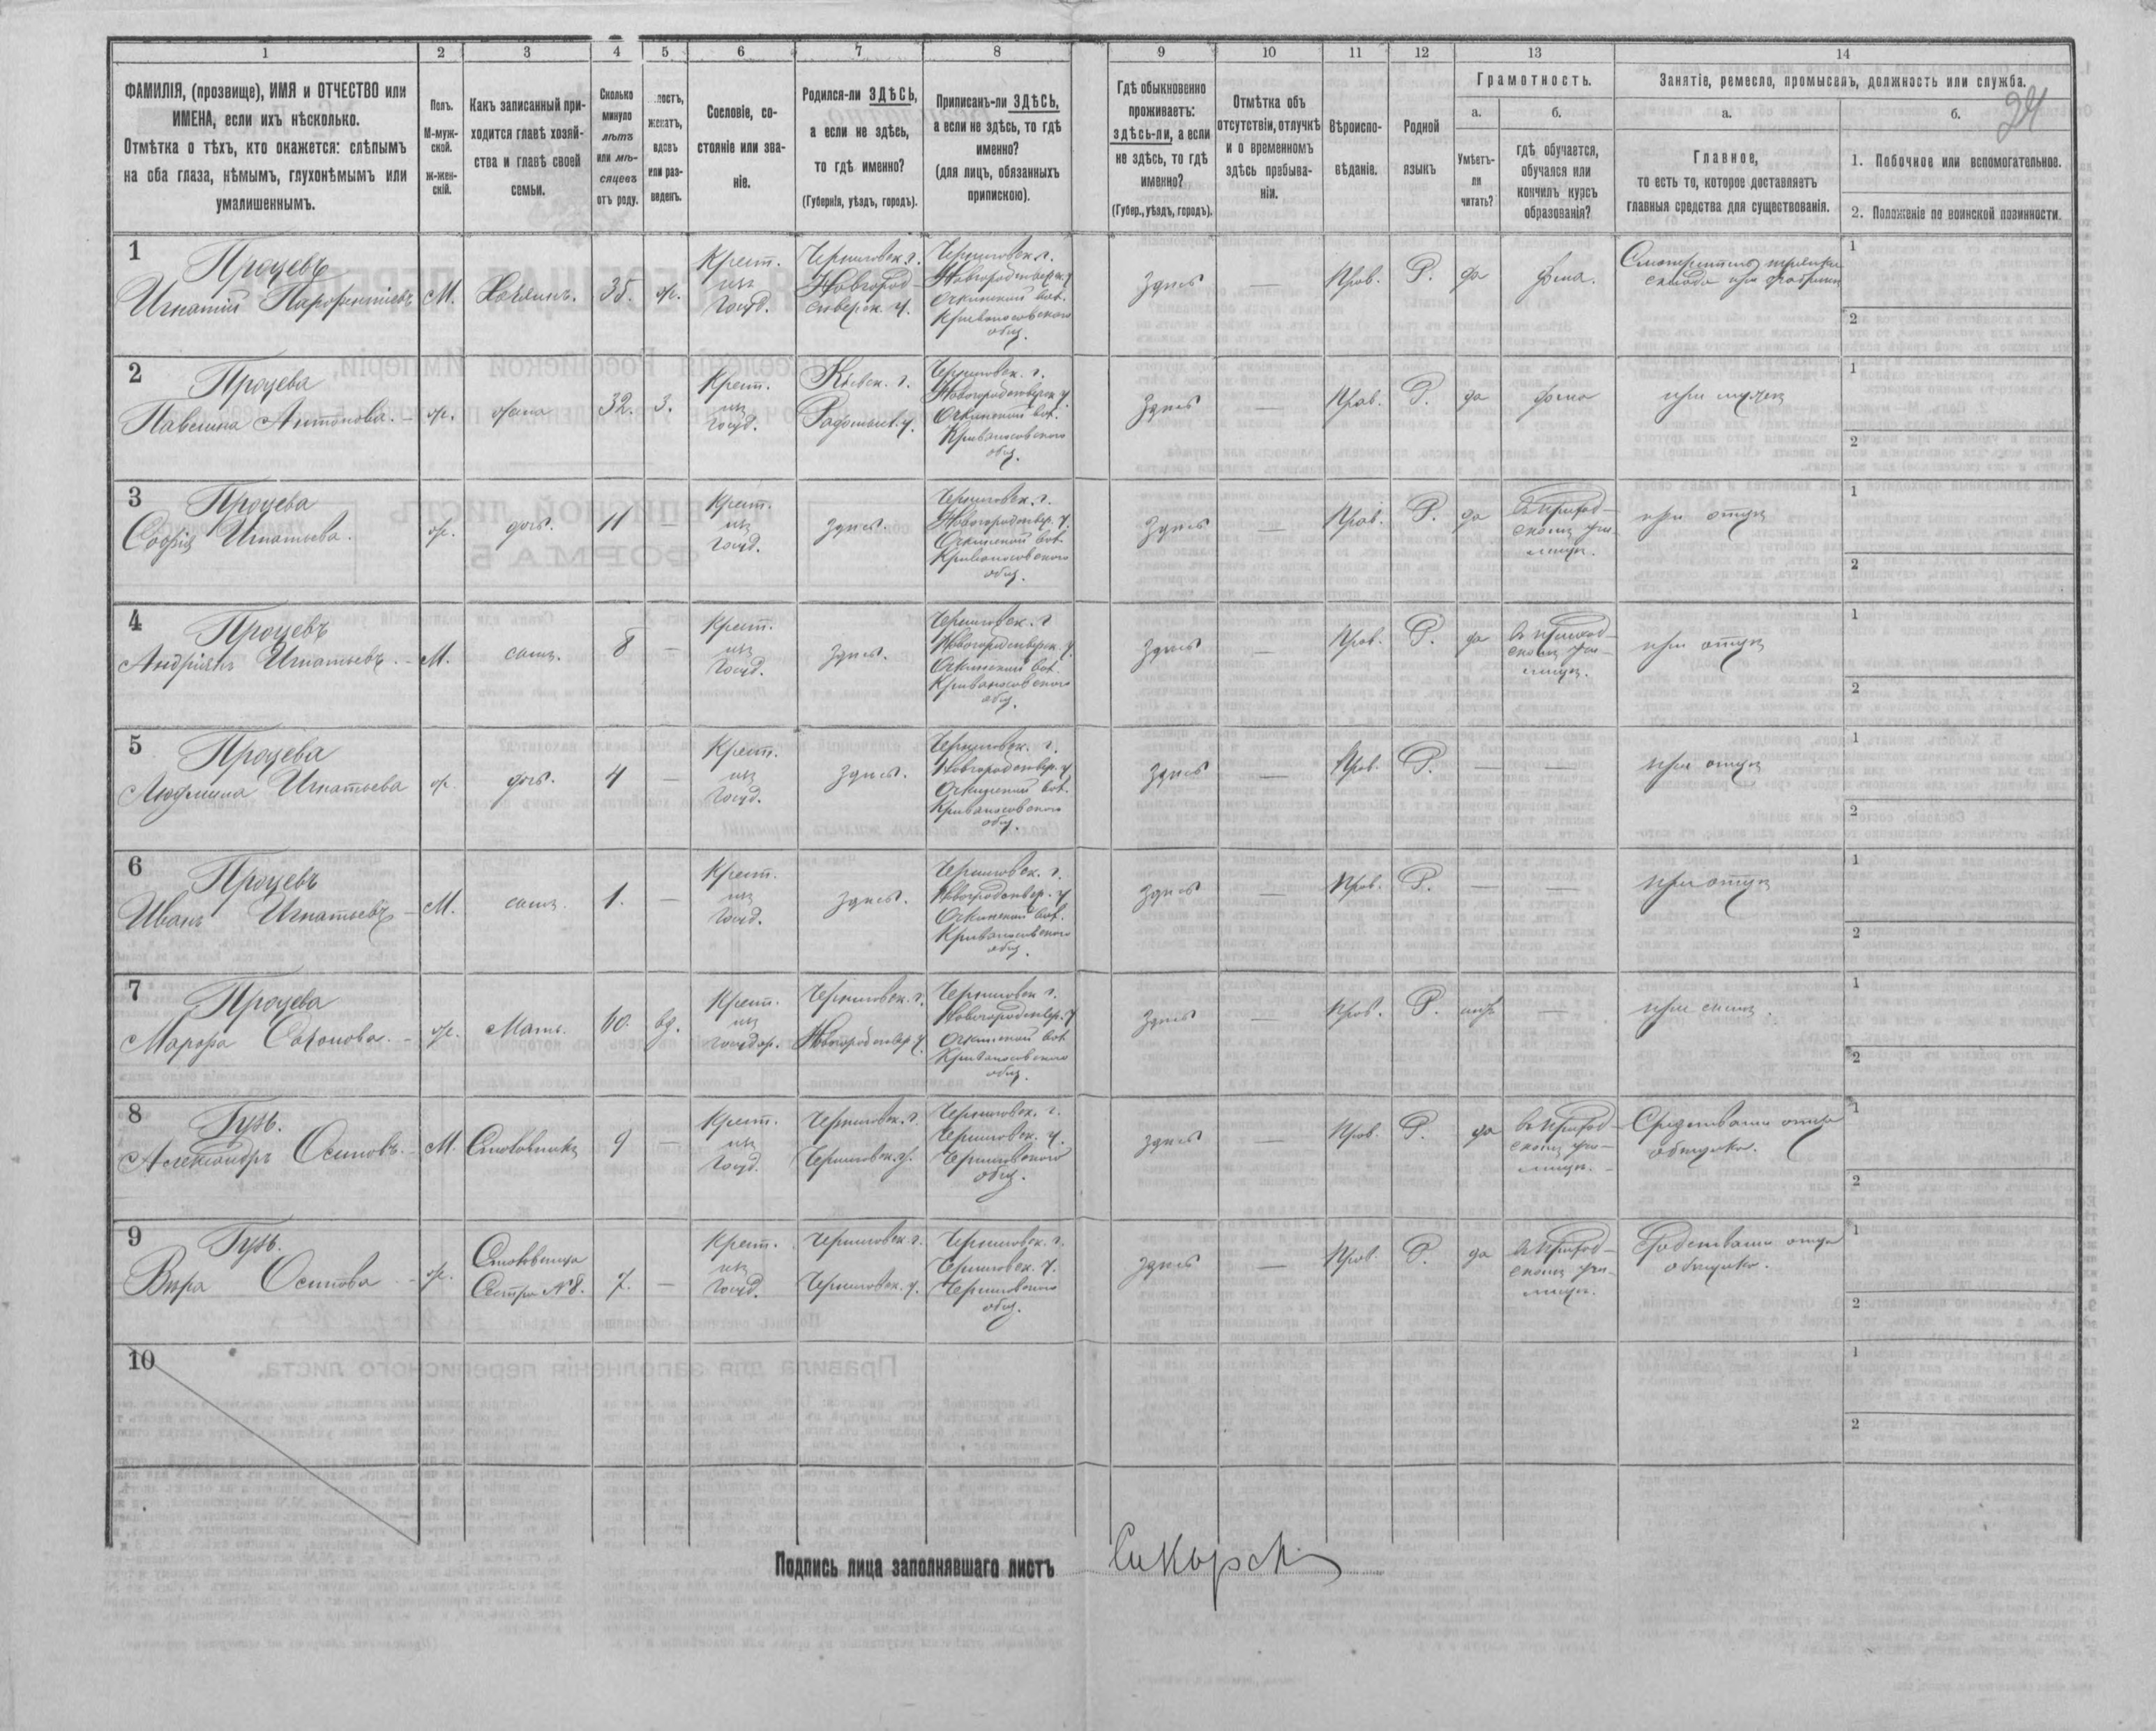 1 2 3 4 5 6 7 8 9 10 11 12 13 14
ФАМИЛІЯ, (прозвище), ИМЯ и ОТЧЕСТВО или
ИМЕНА, если ихъ нѣсколько.
Отмѣтка о тѣхъ, кто окажется: слѣпымъ
на оба глаза, нѣмымъ, глухонѣмымъ или
умалишеннымъ.
Полъ.
М-муж-
ской.
Ж-жен-
скій.
Какъ записанный при-
ходится главѣ хозяй-
ства и главѣ своей
семьи.
Сколько
минуло
лѣтъ
или мѣ-
сяцевъ
отъ роду.
лостъ,
женатъ,
вдовъ
или раз-
веденъ.
Сословіе, со-
стояніе или зва-
ніе.
Родился-ли ЗДѢСЬ,
а если не здѣсь,
то гдѣ именно?
(Губернія, уѣздъ, городъ).
Приписанъ-ли ЗДѢСЬ,
а если не здѣсь, то гдѣ
именно?
(для лицъ, обязанныхъ
припискою).
Гдѣ обыкновенно
проживаетъ:
здѣсь-ли, а если
не здѣсь, то гдѣ
именно?
(Губер., уѣздъ, городъ).
Отмѣтка объ
отсутствіи, отлучкѣ
и о временномъ
здѣсь пребыва-
ніи.
Вѣроиспо-
вѣданіе.
Родной
языкъ
Грамотность.
а.
Умѣетъ-
ли
читать?
б.
гдѣ обучается,
обучался или
кончилъ курсъ
образованія?
Занятіе, ремесло, промыселъ, должность или служба.
24
а.
Главное,
то есть то, которое доставляетъ
главныя средства для существованія.
б.
1. Побочное или вспомогательное.
2. Положеніе по воинской повинности.
1
Процевъ
Игнатій
М. Хозяинъ. 35.
Крест.
изъ
Госуд.
Черниговск. г.
Новгород-
сѣверск. у.
Черниговск. г.
Новгородсѣверск. у
Очкинской вол.
Кривоносовского
общ.
здѣсь Прав. Р. да дома.
1
2
2
Процева
Павлина Антонова. 32. З.
Крест.
изъ
Госуд.
Кіевск. г.
Радомысл. у.
Черниговск. г.
Новгородсѣверск. у.
Очкинской вол.
Кривоносовского
общ.
здѣсь — Прав. Р. да дома при мужѣ
1
2
3
Процева
Софія Игнатьева. доч. 11 —
Крест.
изъ
Госуд.
здѣсь.
Черниговск. г.
Новгородсѣвер. у.
Очкинской вол.
Кривоносовского
общ.
здѣсь — Прав. Р. да
въ приход-
скомъ учи-
лищѣ.
при отцѣ
1
2
4
Процевъ
Андріянъ Игнатьевъ. М. сынъ. 8 —
Крест.
изъ
Госуд.
здѣсь.
Черниговск. г
Новгородсѣверск. у.
Очкинской вол.
Кривоносовского
общ.
здѣсь — Прав. Р. да
въ приход-
скомъ учи-
лищѣ.
при отцѣ
1
2
5
Процева
Людмила Игнатьева доч. 4 —
Крест.
изъ
Госуд.
здѣсь.
Черниговск. г.
Новгородсѣвер. у
Очкинской вол.
Кривоносовского
общ.
здѣсь — Прав. Р. — — при отцѣ
1
2
6
Процевъ
Иванъ Игнатьевъ М. сынъ. 1. —
Крест.
изъ
Госуд.
здѣсь.
Черниговск. г.
Новгородсѣвер. у
Очкинской вол.
Кривоносовского
общ.
здѣсь — Прав. Р. — — при отцѣ
1
2
7
Процева
Марфа Мать. 60. вд.
Крест.
изъ
Государ.
Черниговск. г.
Новгородсѣвер у.
Черниговск г.
Новгородсѣвер. у
Очкинской вол
Кривоносовского
общ.
здѣсь — Прав. Р. нѣтъ — при сынѣ.
1
2
8
Гузь.
Александръ Осиповъ. М. Столовникъ 9 —
Крест.
изъ
Госуд.
Черниговск. г.
Черниговск. у.
Черниговск. г.
Черниговск. у.
Черниговского
общ.
здѣсь — Прав. Р. да
въ приход-
скомъ учи-
лищѣ.
Средствами отца
1
2
9
Гузь.
Вѣра Осипова
Столовница
Сестра № 8. 7. —
Крест.
изъ
Госуд.
Черниговск. г.
Черниговск. у.
Черниговск. г.
Черниговск. у.
Черниговского
общ.
здѣсь — Прав. Р. да
въ приход-
скомъ учи-
лищѣ.
отца
1
2
10
1
2
Подпись лица заполнявшаго листъ